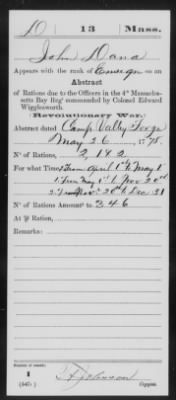 D 13 Mass.
John Dana
Appears with the rank of Ensign on an
Abstract
of Rations due to the Officers in the 4th Massachu-
setts Bay Reg' commanded by Colonel Edward
Wigglesworth.
(Revolutionary War.)
Abstract dated Camp Valley Forge
May 26, 1778.
N° of Rations, 2, 1 & 2
For what Time, 2 From April 1st to May 1
1 From May 1st to Nov 20th
2 From Nov 20th to Dec 31
N° of Rations Amount to 346
At Ration,
Remarks:
Number of records:
1
(545)
Johnson
Copyist.